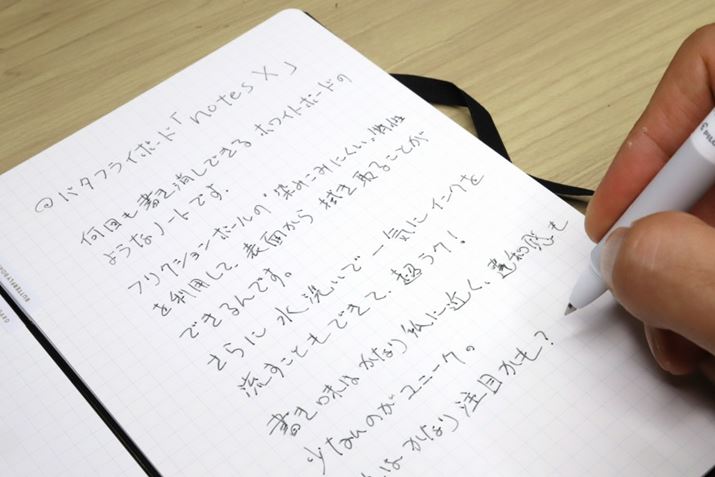 @バタフライボード「notes X」
何回も書き流しできるホワイトボードの
ようなノートです。
フリクションボールの"染みこみにくい"特性
を利用して、表面から拭き取ることが
できるんです。
さらに水洗いで一気にインクを
流すこともできて、超ラク!
書き味はかなり紙に近く、違和感も
少ないのがユニーク。
はかなり注目かも?